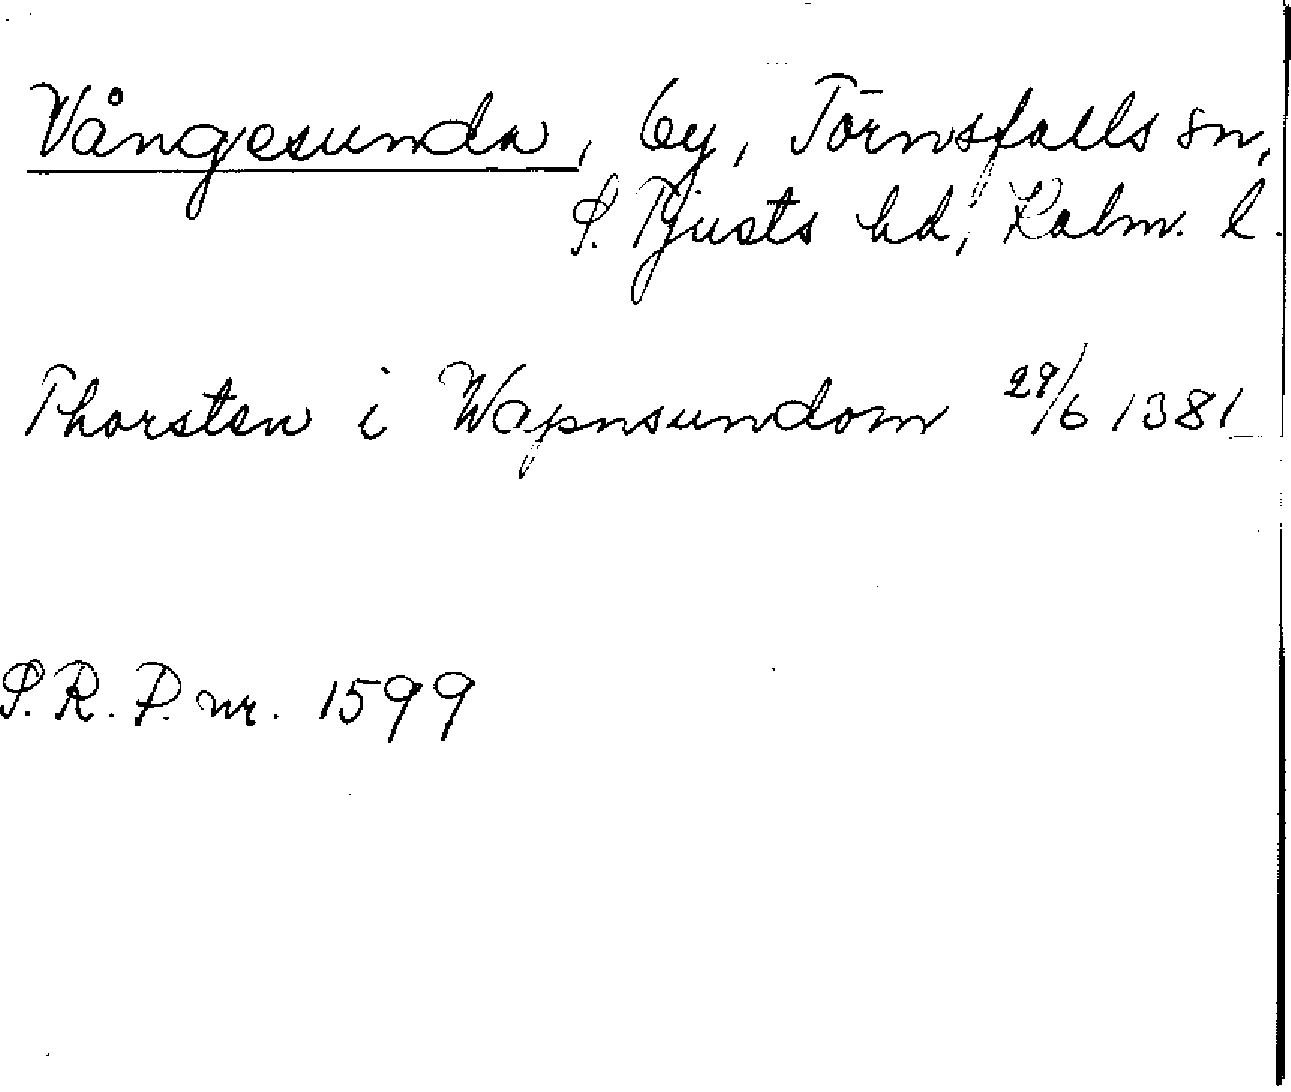 Vångesunda, by, Törnsfalls sn,
S. Tjusts hd, Kalm. l.
Thorsten i Wapnsundom 29/6 1381
S.R.P. nr. 1599